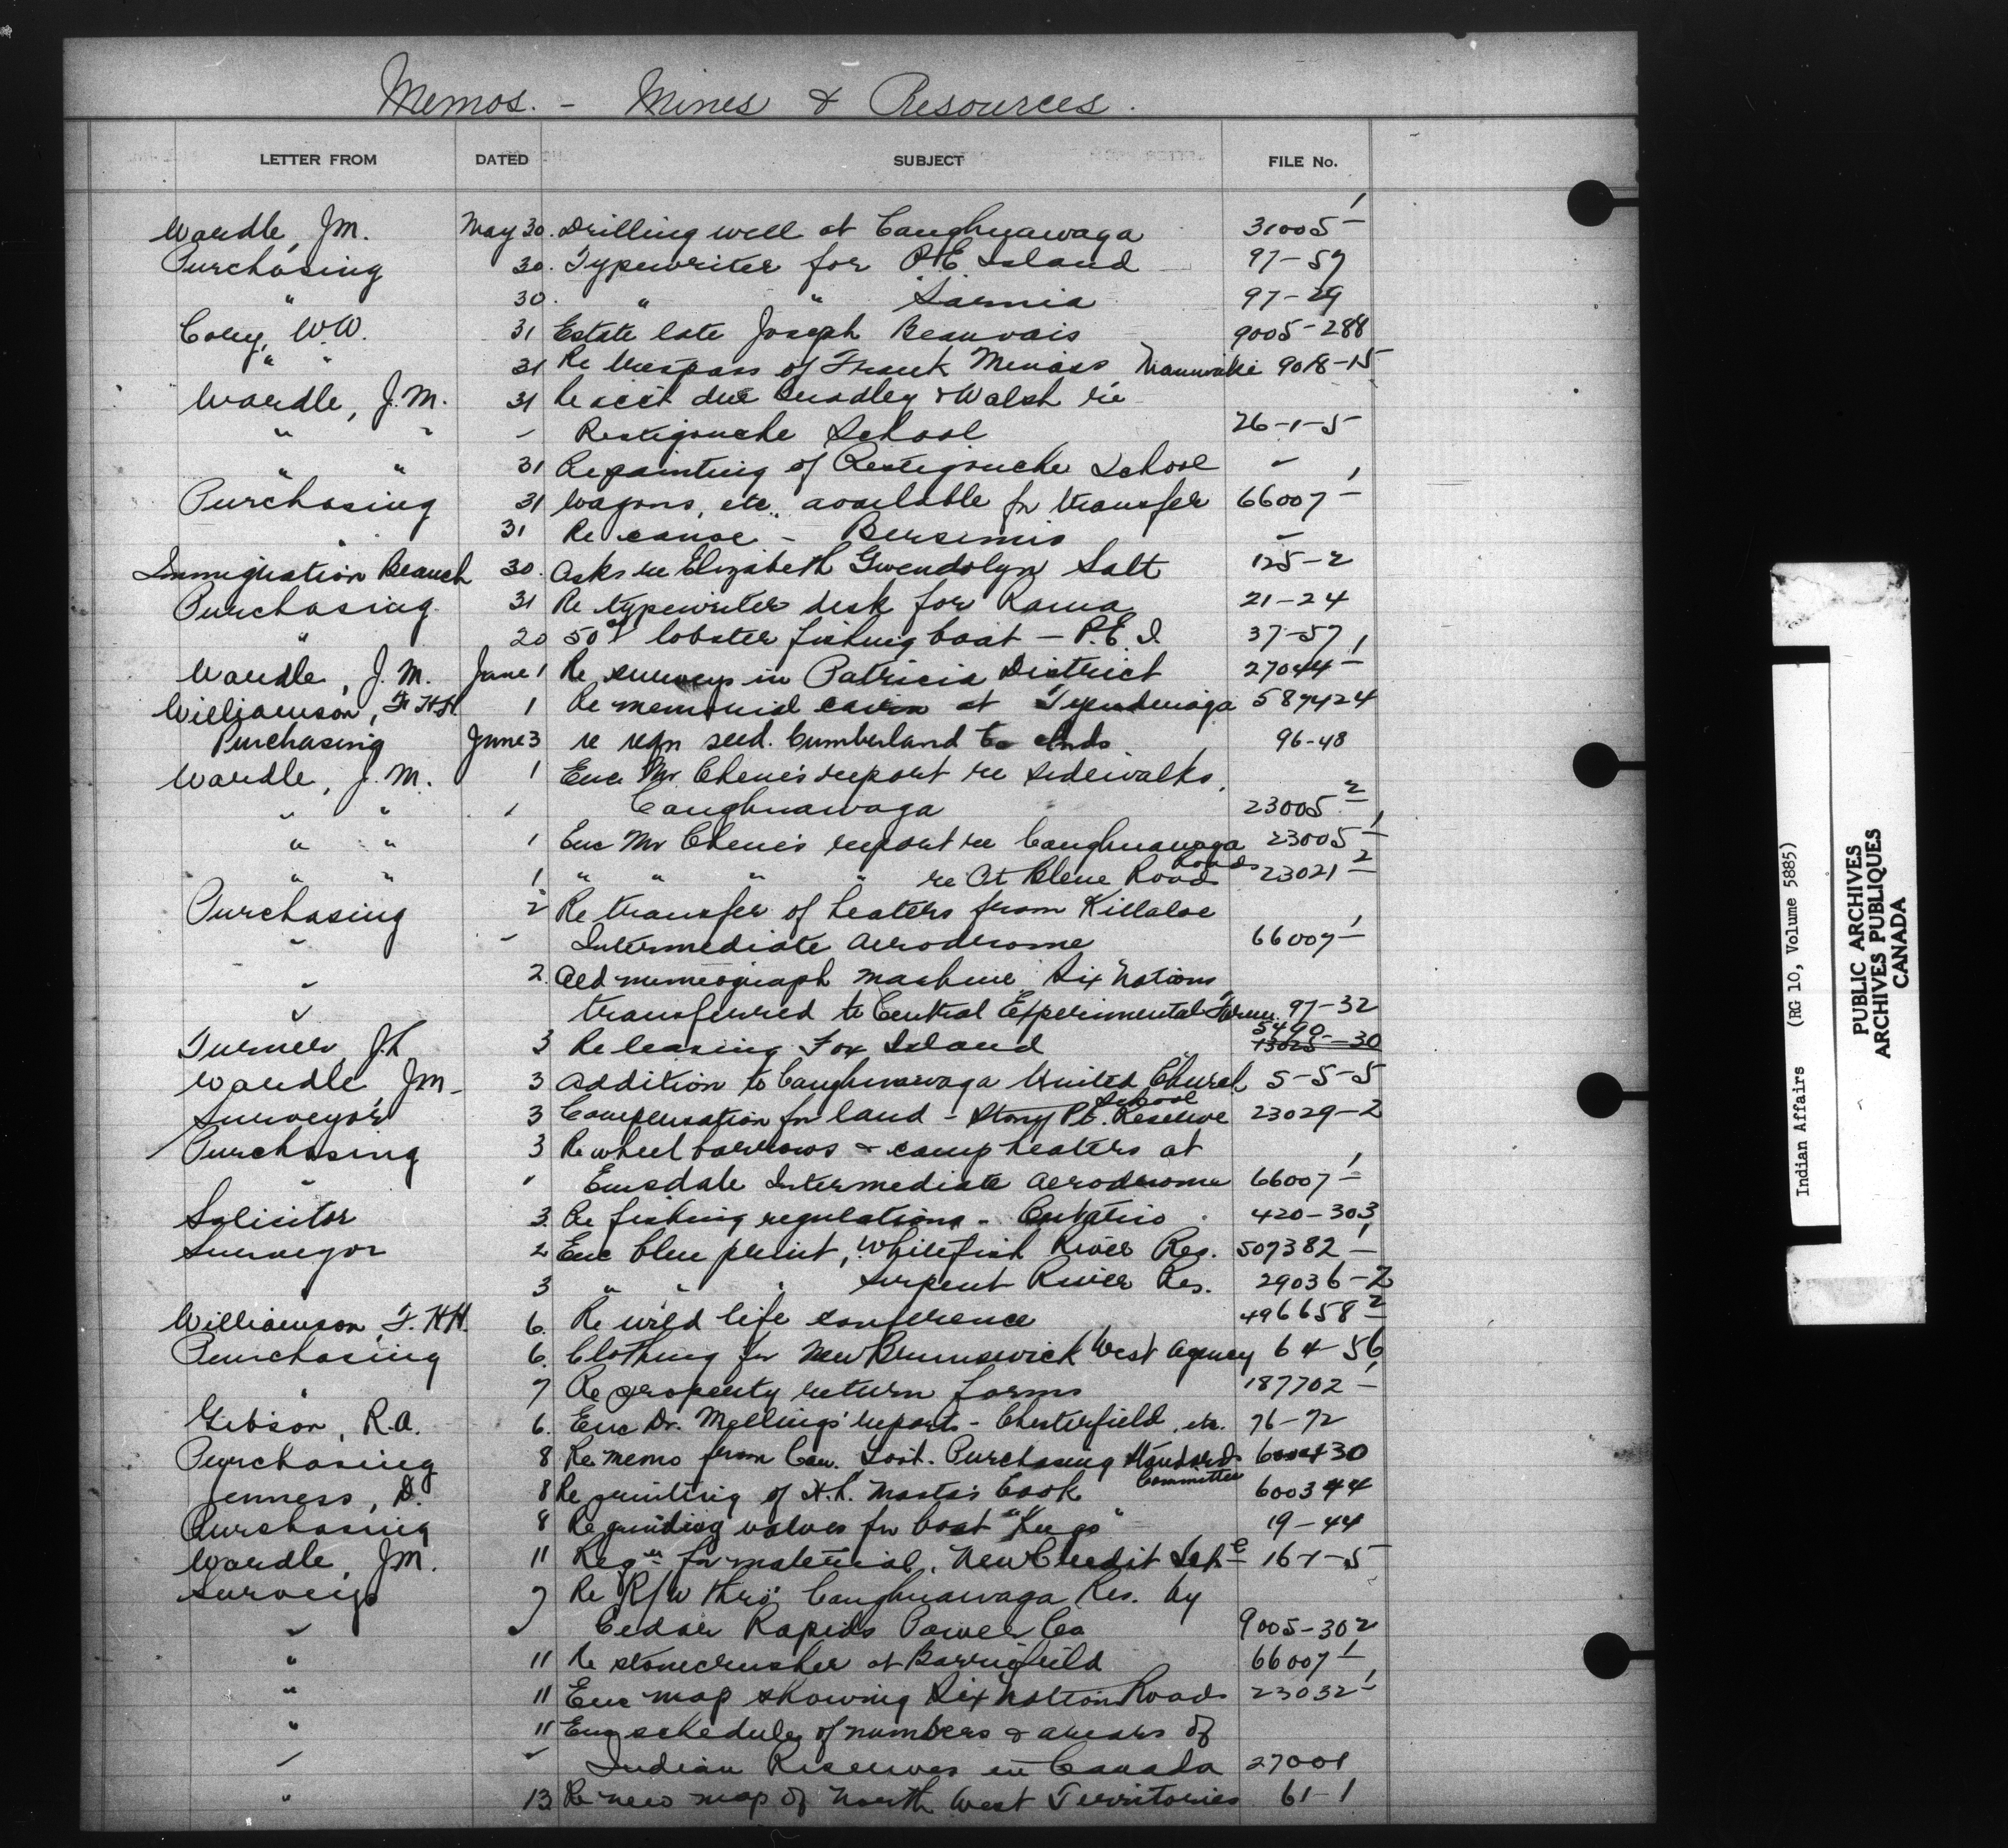 Memos. - Mines & Resources.
LETTER FROM DATED SUBJECT FILE No.
Wardle, J.M. May 30. Drilling well at Caughnawaga 31005-1
Purchasing 30. Typewriter for P.E. Island 97-57
" 30. " " Sarnia 97-29
Cory, W.W. 31 Estate late Joseph Beauvais 9005-288
" " 31 Re trespass of Frank Meness Maniwaki 9018-15
Wardle, J.M. 31 Re acct due Bradley & Walsh re
" " " Restigouche School 26-1-5
" " 31 Repainting of Restigouche School "
Purchasing 31 Wagons, etc. available for transfer 66007-1
" 31 Re canoe - Bersimis "
Immigration Branch 30. Asks re Elizabeth Gwendolyn Salt 125-2
Purchasing 31 Re typewriter desk for Rama 21-24
" 20 lobster fishing boat - P.E.I. 37-57
Wardle, J.M. June 1 Re surveys in Patricia District 27044-1
Williamson, F.H.H. 1 Re memorial cairn at Tyendenaga 587424
Purchasing June 3 re reqn seed. Cumberland Co Inds. 96-48
Wardle, J.M. 1 Enc Mr Chene's report re sidewalks,
" " " Caughnawaga 23005-2
" " 1 Enc Mr Chene's report re Caughnawaga Roads 23005-1
" " 1 " " " " re Roads 23021-2
Purchasing 2 Re transfer of heaters from Killaloe
" " Intermediate Aerodrome 66007-1
" 2. Old mimeograph machine Six Nations
" transferred to Central Experimental Farm 97-32
Turner, J.L. 3 Re leasing Fox Island 13025-30 5490-
Wardle, J.M. 3 Addition to Caughnawaga United Church School 5-5-5
Surveyor 3 Compensation for land - Stony Pt. Reserve 23029-2
Purchasing 3 Re wheel barrows & camp heaters at
" " Emsdale Intermediate Aerodrome 66007-1
Solicitor 3. Re fishing regulations - Ontario. 420-303
Surveyor 2 Enc blue print, Whitefish River Res. 507382-1
3 " " " Serpent River Res. 29036-2
Williamson, F.H.H. 6. Re wild life conference 496658-2
Purchasing 6. Clothing for New Brunswick West Agency 64-56
" 7 Re property return forms 187702-1
Gibson, R.A. 6. Enc Dr. Melling's report - Chesterfield, etc. 76-72
Purchasing 8 Re memo from Can. Govt. Purchasing Standards Committee 600430
Jenness, D. 8 Re printing of book 600344
Purchasing 8 Re grinding valves for boat 19-44
Wardle, J.M. 11 Reqn for material, New Credit Sch. 16-1-5
Surveys 7 Re R/W thro' Caughnawaga Res. by
" " Cedar Rapids Power Co 9005-302
" 11 Re stonecrusher at Barriefield 66007-1
" 11 Enc map showing Six Nation Roads 23032-1
" 11 Enc schedule of numbers & arears of
" " Indian Reserves in Canada 27001
" 13 Re new map of North West Territories 61-1
Indian Affairs (RG 10, Volume 5885)
PUBLIC ARCHIVES
ARCHIVES PUBLIQUES
CANADA